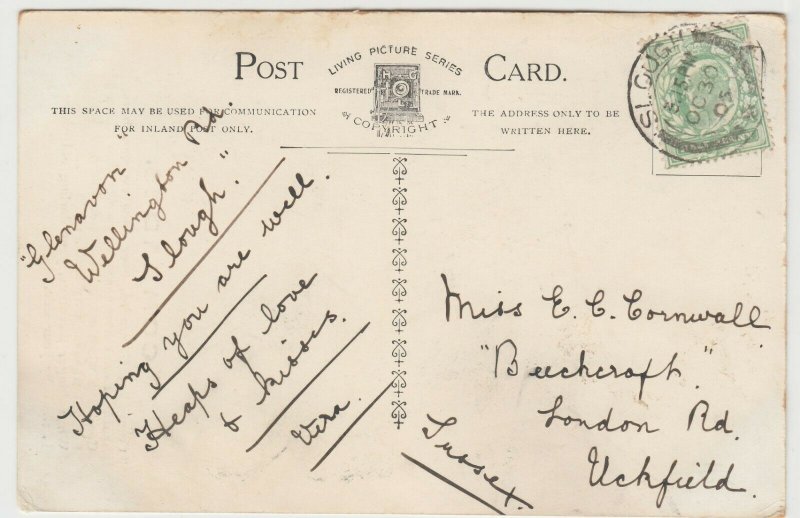 POST CARD.
LIVING PICTURE SERIES
REGISTERED TRADE MARK.
COPYRIGHT
THIS SPACE MAY BE USED FOR COMMUNICATION
FOR INLAND POST ONLY.
THE ADDRESS ONLY TO BE
WRITTEN HERE.
SLOUGH
OC 30
05
"Glenavon"
Wellington Rd.
Slough."
Hoping you are well.
Heaps of love
& kisses.
Vera.
Miss E. C. Cornwall
"Beechcroft"
London Rd.
Uckfield.
Sussex.